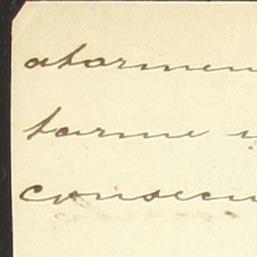 atormen
tarme
consecu